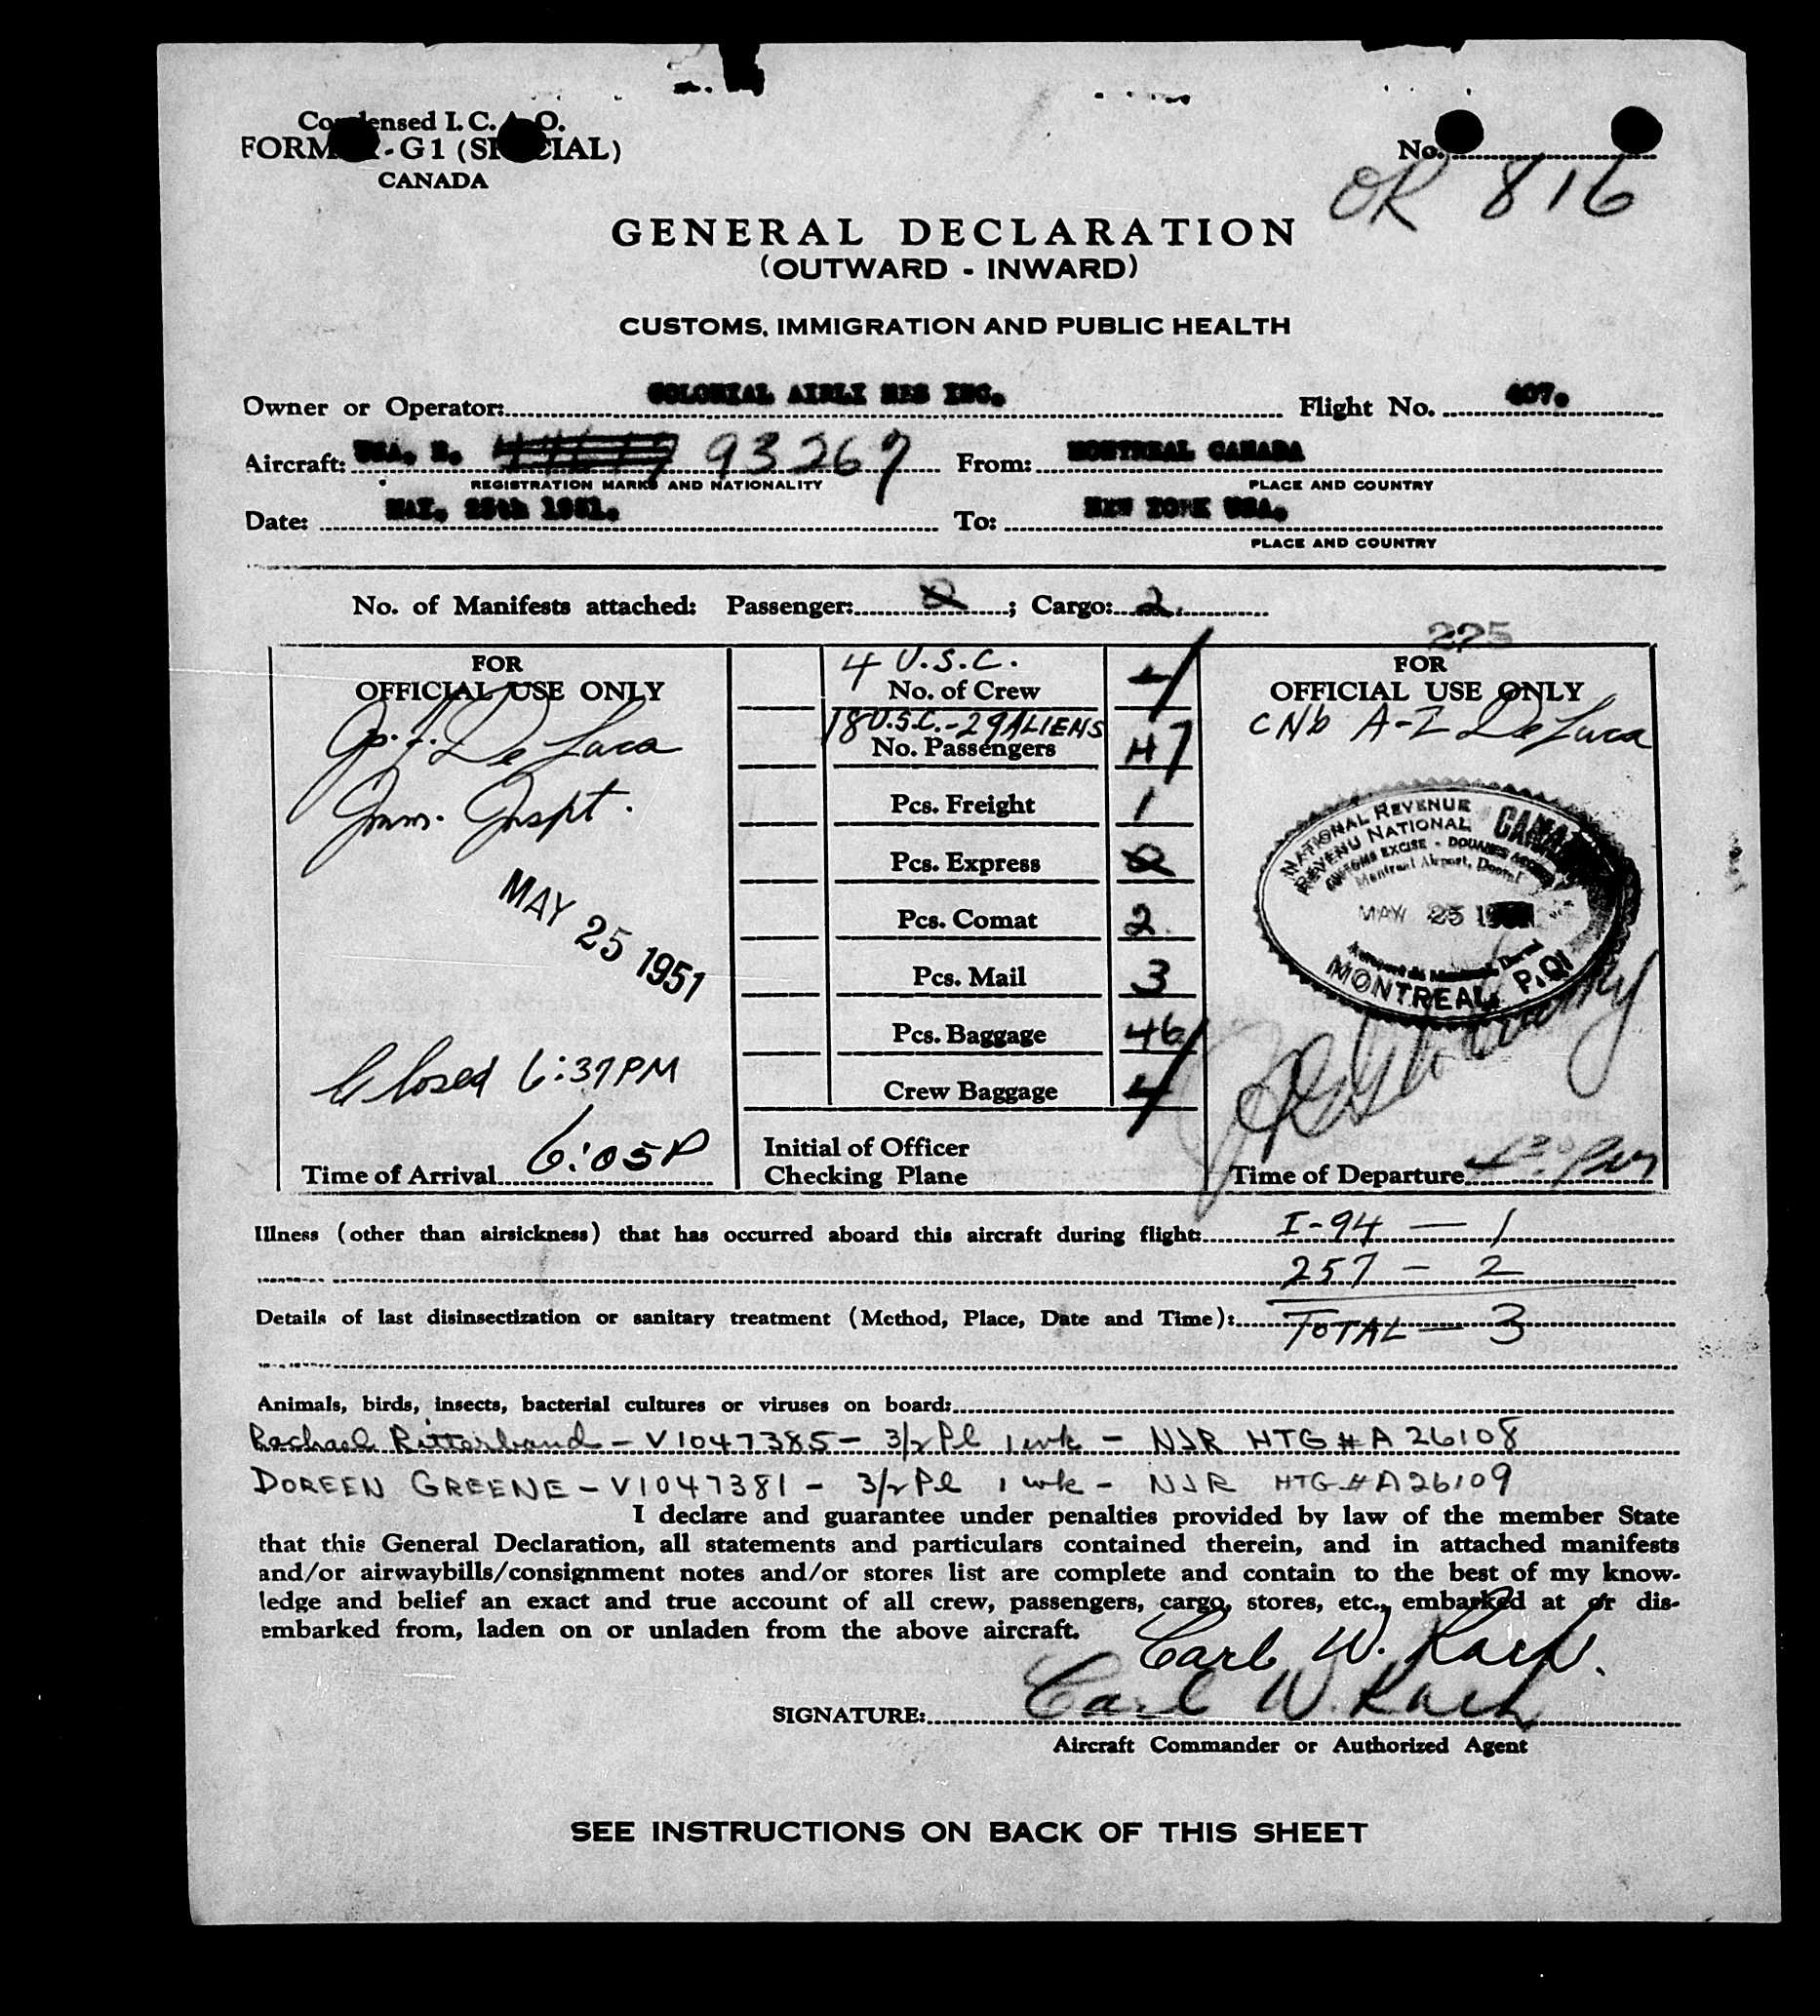 Condensed I. C. A. O.
FORM - G1 (SPECIAL)
CANADA
No.
OR 816
GENERAL DECLARATION
(OUTWARD - INWARD)
CUSTOMS, IMMIGRATION AND PUBLIC HEALTH
Owner or Operator: COLONIAL AIRLI NES INC. Flight No. 407.
Aircraft: USA. N. 93267 From: MONTREAL CANADA
REGISTRATION MARKS AND NATIONALITY PLACE AND COUNTRY
Date: MAY. 25th 1951. To: NEW YORK USA.
PLACE AND COUNTRY
No. of Manifests attached: Passenger: 0; Cargo: 2.
225
FOR
OFFICIAL USE ONLY
Gp. J. De Luca
Imm. Inspt.
MAY 25 1951
Closed 6:37 PM
Time of Arrival 6:05P
4 U.S.C.
No. of Crew 4
18 U.S.C. - 29 ALIENS
No. Passengers 47
Pcs. Freight 1
Pcs. Express 0
Pcs. Comat 2
Pcs. Mail 3
Pcs. Baggage 46
Crew Baggage 4
Initial of Officer
Checking Plane
FOR
OFFICIAL USE ONLY
CNb A-Z De Luca
NATIONAL REVENUE CANADA
REVENU NATIONAL
CUSTOMS EXCISE - DOUANES ACCISE
Montreal Airport, Dorval
MAY 25
Aeroport de Montreal, Dorval
MONTREAL, P.Q.
Time of Departure PM
Illness (other than airsickness) that has occurred aboard this aircraft during flight: I-94 — 1
257 - 2
Details of last disinsectization or sanitary treatment (Method, Place, Date and Time): TOTAL — 3
Animals, birds, insects, bacterial cultures or viruses on board:
Rachael Ritterband - V1047385 - 3/2 Pl 1 wk - NJR HTG # A 26108
DOREEN GREENE - V1047381 - 3/2 Pl 1 wk - NJR HTG # A26109
I declare and guarantee under penalties provided by law of the member State
that this General Declaration, all statements and particulars contained therein, and in attached manifests
and/or airwaybills/consignment notes and/or stores list are complete and contain to the best of my know-
ledge and belief an exact and true account of all crew, passengers, cargo, stores, etc., embarked at or dis-
embarked from, laden on or unladen from the above aircraft.
Carl W. Rach.
SIGNATURE: Carl W. Rach
Aircraft Commander or Authorized Agent
SEE INSTRUCTIONS ON BACK OF THIS SHEET